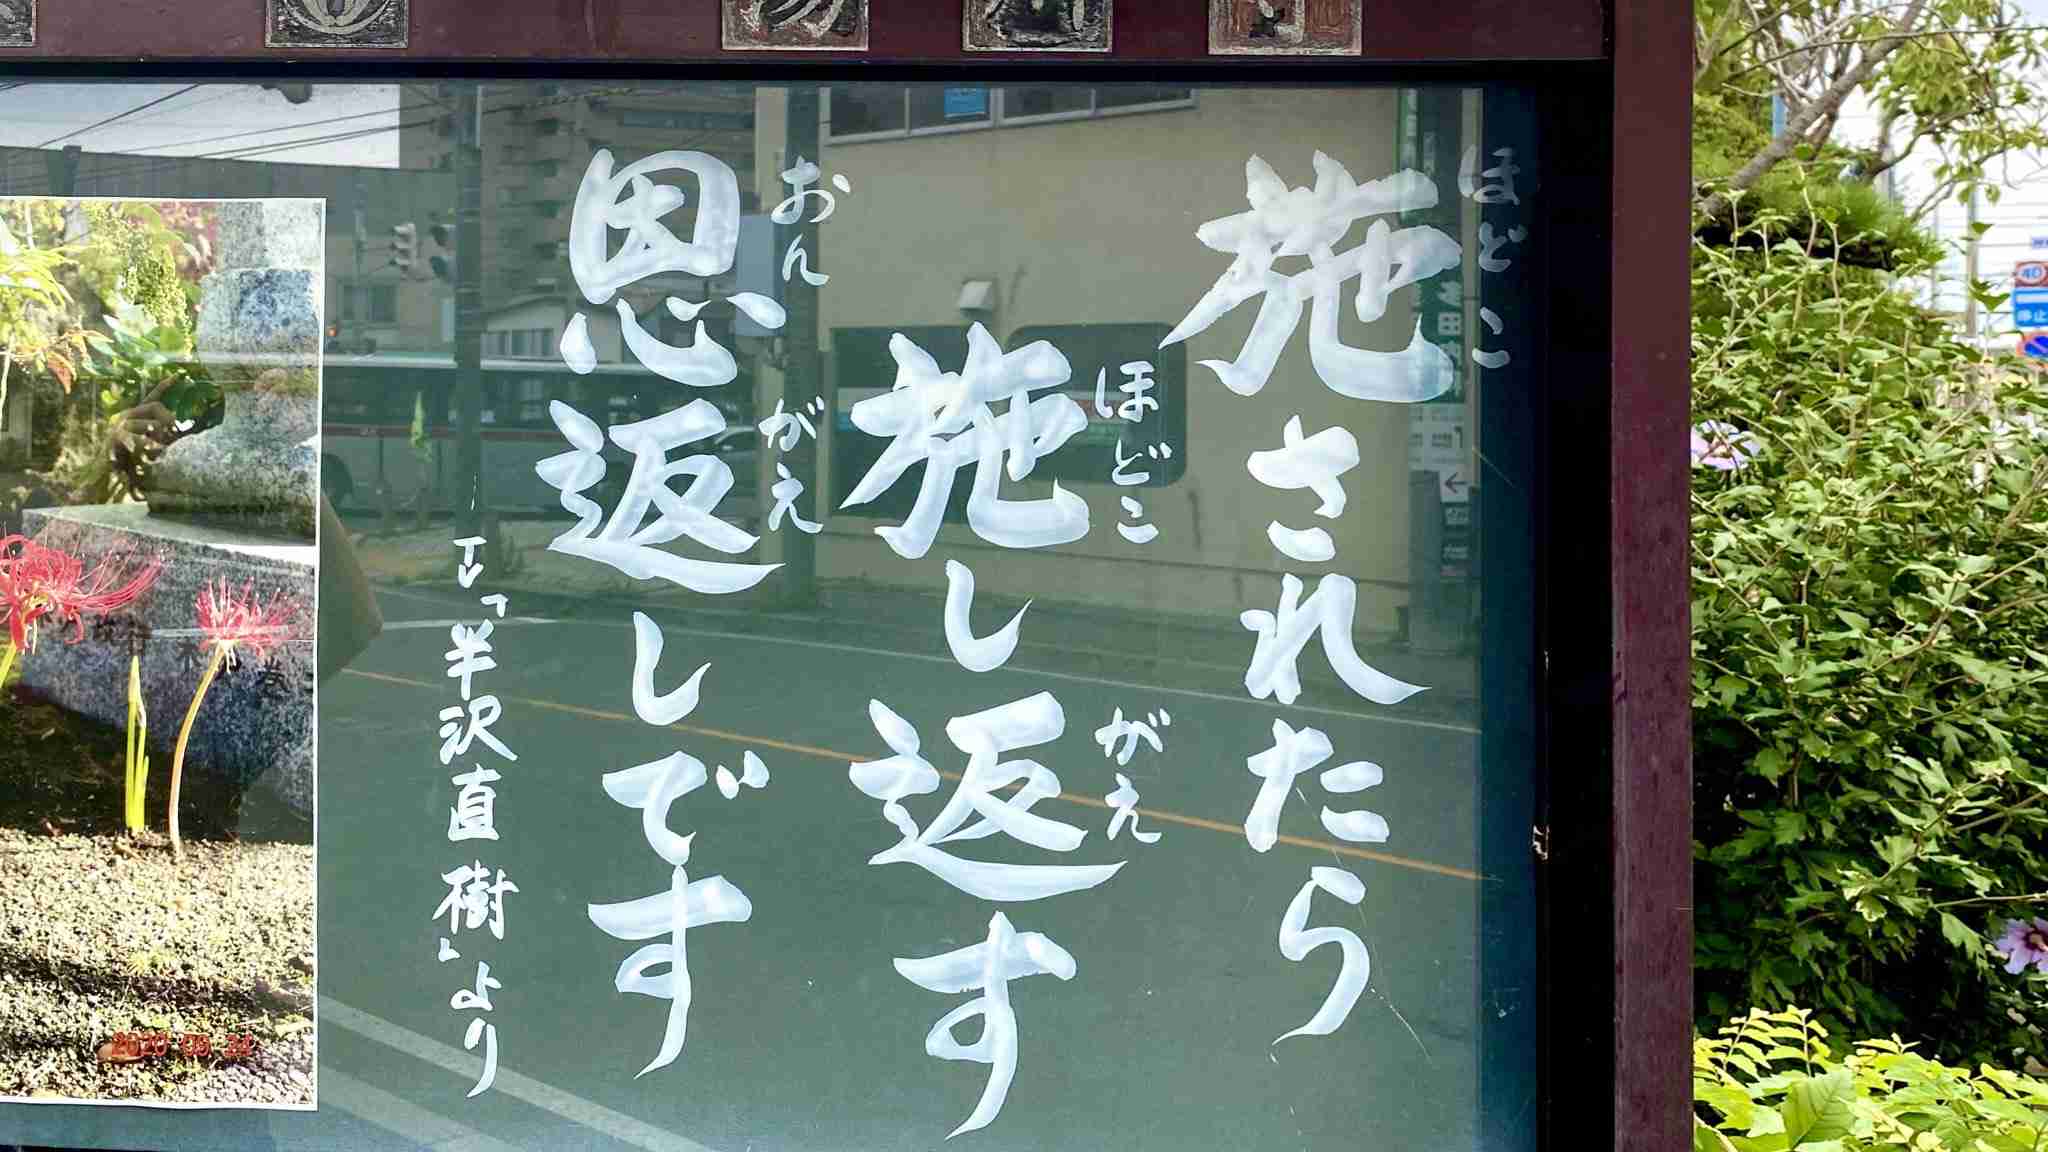 施されたら
ほどこ
施し返す
ほどこ がえ
恩返しです
おん がえ
TV「半沢直樹」より
2020 09 24
40
停止